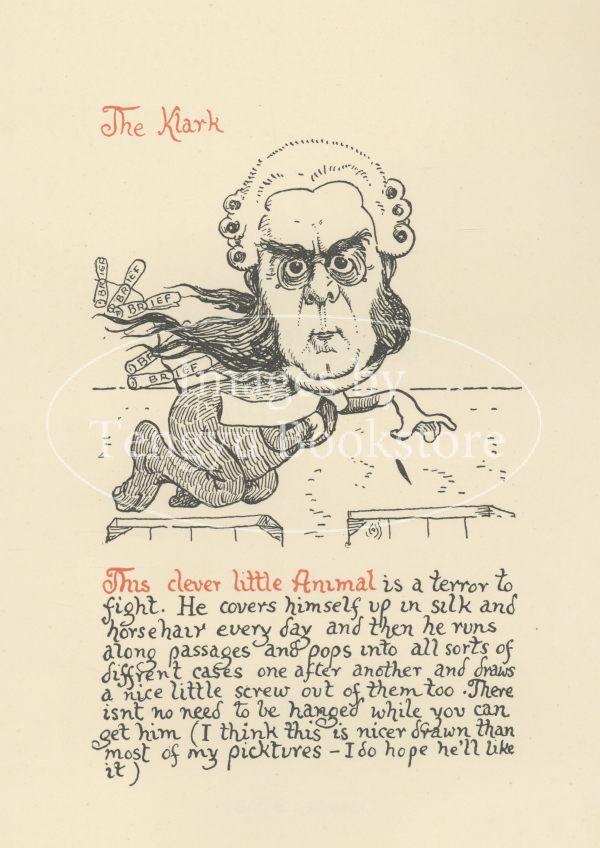 The Klark
BRIEF
BRIEF
BRIEF
BR
BRIEF
Images by
Tengu Bookstore
This clever little Animal is a terror to
fight. He covers himself up in silk and
horsehair every day and then he runs
along passages and pops into all sorts of
diffrent cases one after another and draws
a nice little screw out of them too. There
isnt no need to be hanged while you can
get him (I think this is nicer drawn than
most of my picktures - I do hope he'll like
it)